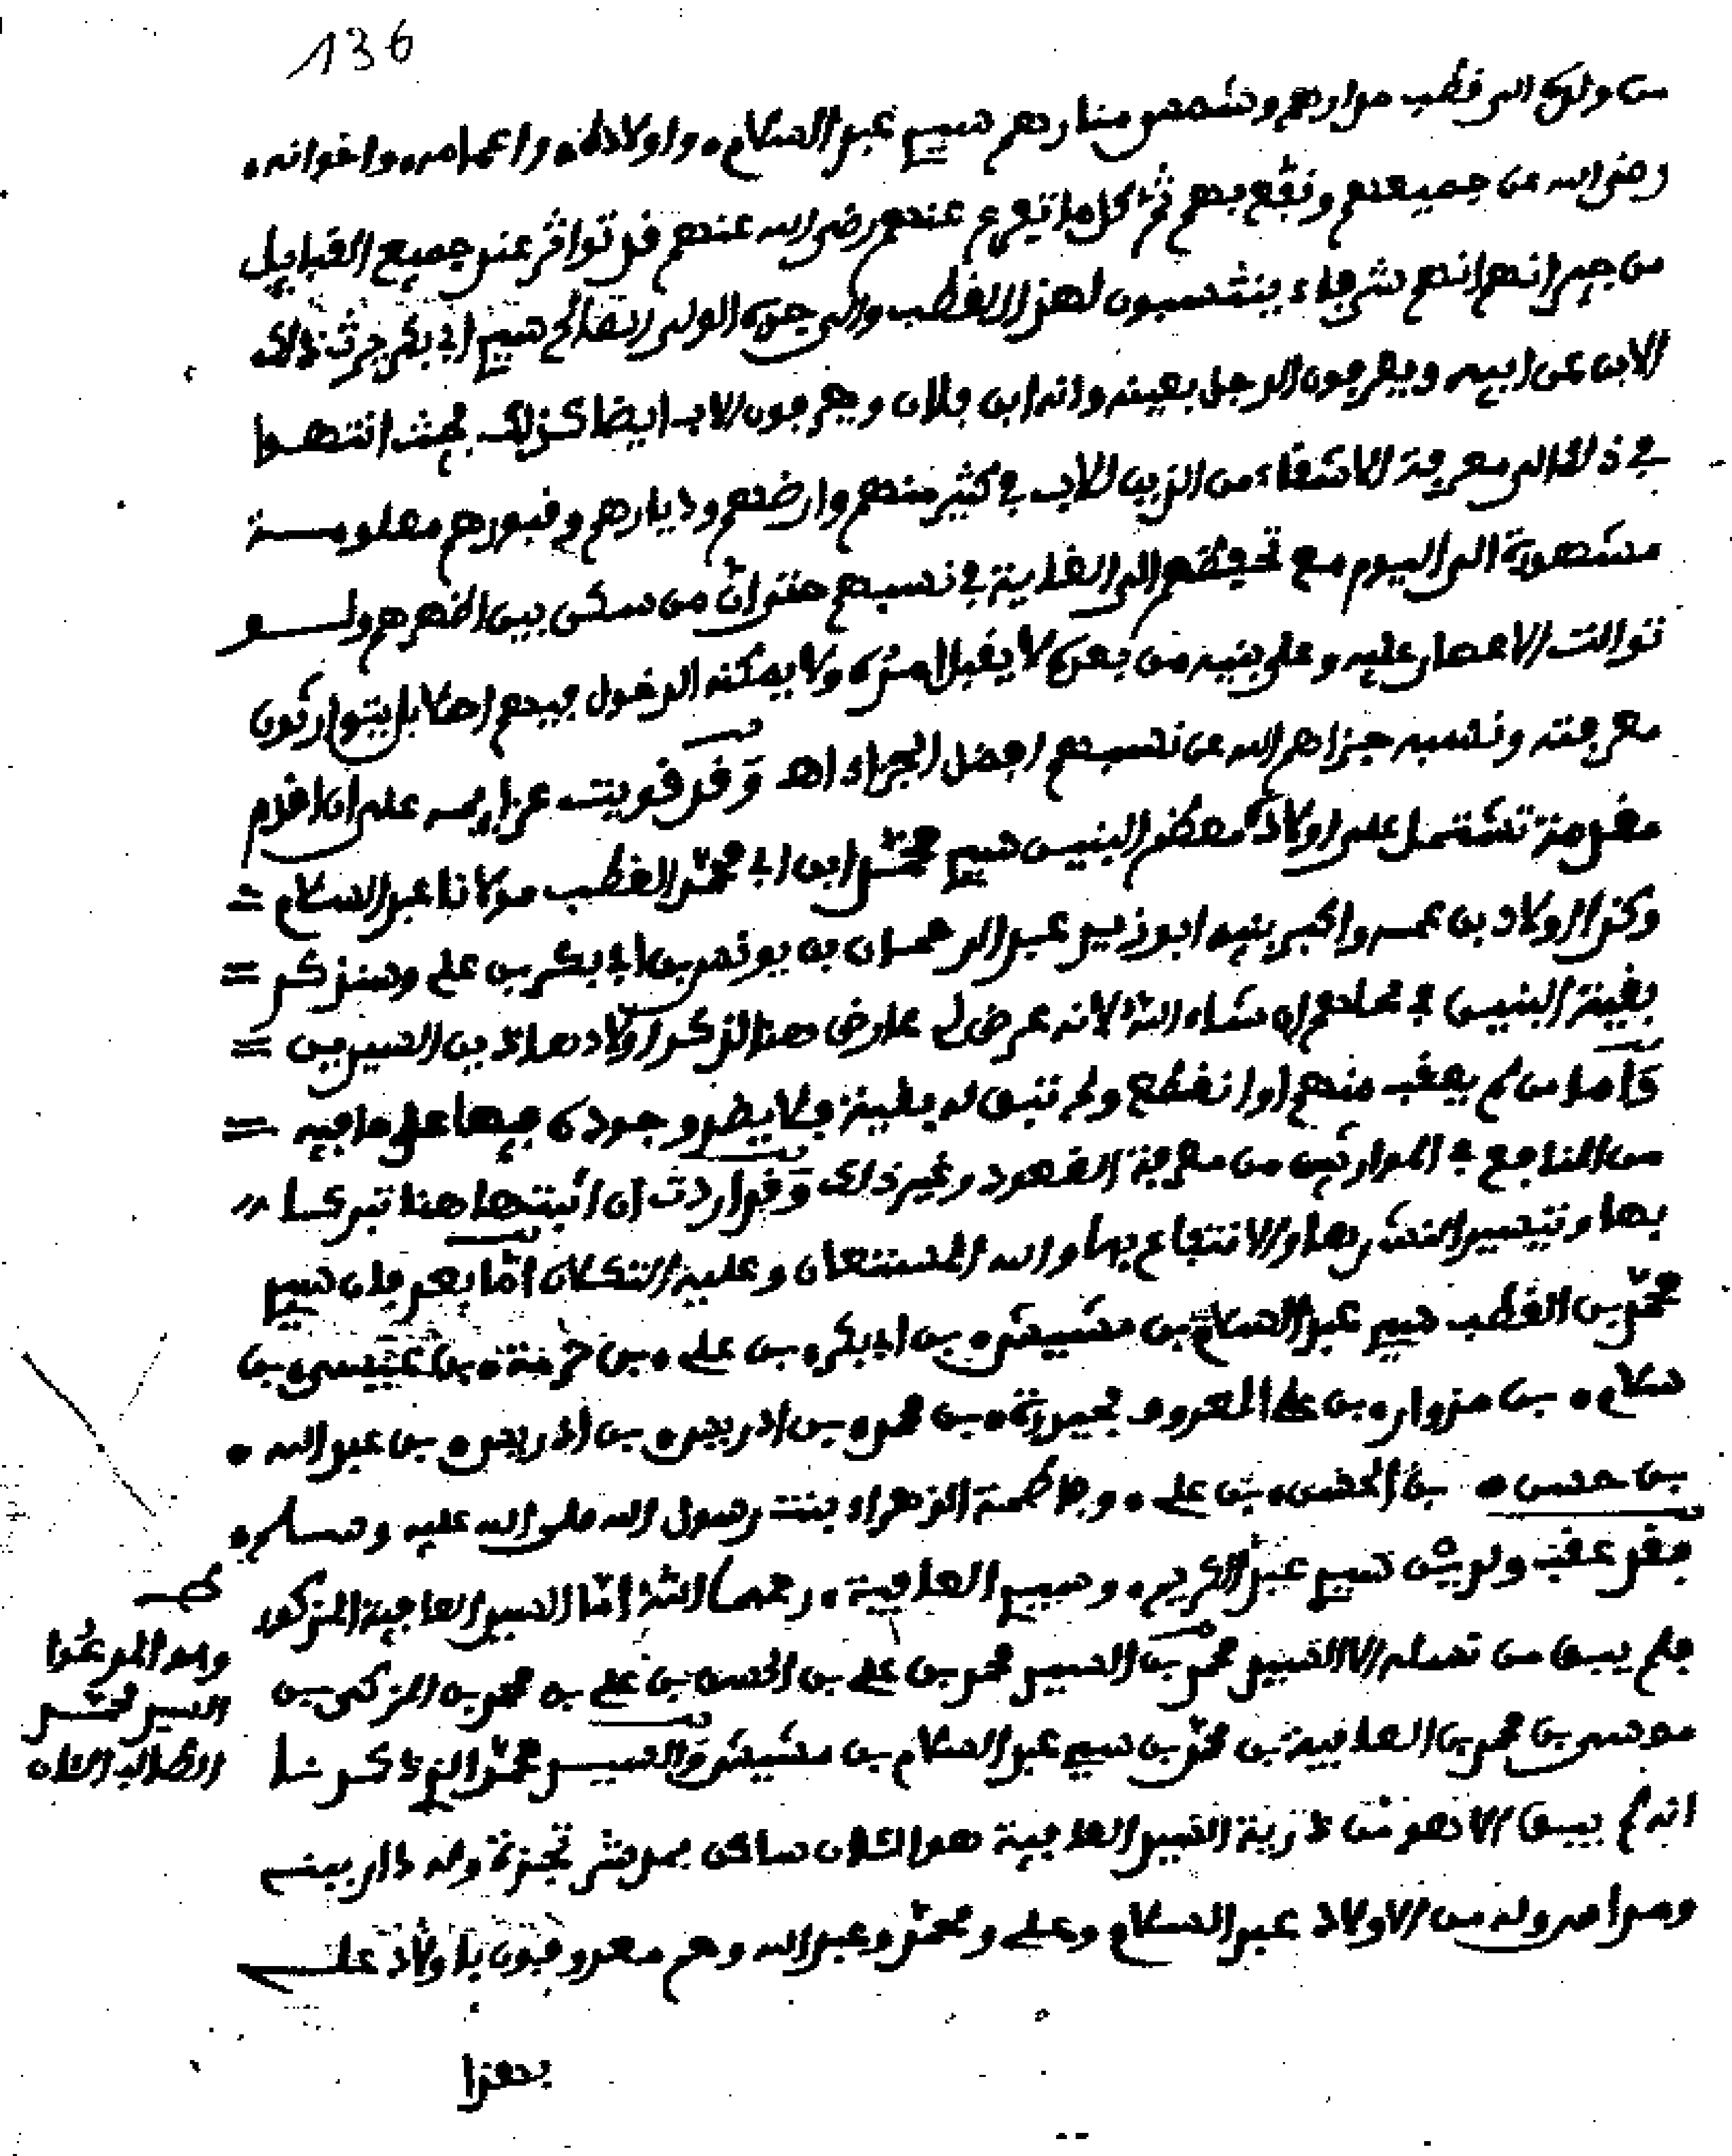 136
من ولده الى قطب مدارهم وشمس منارهم سيدي عبد السلام. واولاده. واعمامه. واخوانه.
رضي الله عن جميعهم ونفع بهم ثم كل ما تفرع عنهم رضي الله عنهم قد تواتر عند جميع القبايل
من جيرانهم انهم شرفاء ينتسبون لهذا القطب والى جده الولي الصالح سيدي ابي بكر حدث بذلك
الابن عن ابيه ويعرفون الرجل بعينه وانه ابن فلان ويعرفون الاب ايضا كذلك بحيث انتهوا
في ذلك الى معرفة الاشقاء من الذين للاب في كثير منهم وارضهم وديارهم وقبورهم معلومة
مشهورة الى اليوم مع تحفظهم الى الغاية في نسبهم حتى ان من سكن بين اظهرهم ولو
توالت الاعصار عليه وعلى بنيه من بعده لا يقبل ولا يمكنه الدخول فيهم اصلا بل يتوارثون
معرفته ونسبه جزاهم الله عن نسبهم افضل الجزاء اهـ وقد قويت على ان اقدم
مقدمة تشتمل على اولاد معظم البنين سيدي محمد ابن ابي محمد القطب مولانا عبد السلام =
وكذا اولاد بن عمه واكبر بنيه ابو زيد عبد الرحمان بن يونس بن ابي بكر بن علي وسنذكر =
بقية البنين في محلهم ان شاء الله لانه عرض لي عارض هنا لذكر اولاد هاذين السيدين =
وأما من لم يعقب منهم او انقطع ولم تبق له بقية فلا يضر وجوده فيها على ما فيه =
من المنافع في الموارثين من معرفة القعود وغير ذلك وقد اردت ان اثبتها هنا تبركا
بها وتيسير النشرها والانتفاع بها والله المستعان وعليه التكلان أمّا بعد فان سيدي
محمد بن القطب سيدي عبد السلام بن مشيش. بن ابي بكر. بن علي. بن حرمة. بن عيسى. بن
سلام. بن مزوار. بن علي المعروف بحيدرة. بن محمد. بن ادريس. بن ادريس. بن عبد الله.
بن حسن. بن الحسن. بن علي. وفاطمة الزهراء بنت رسول الله صلى الله عليه وسلم.
فقد عقب ولدين سيدي عبد الكريم. وسيدي العافية. رحمها الله امّا السيد العافية المذكور
فلم يبق من نسله الا السيد محمد بن السيد محمد بن علي بن الحسن بن علي بن محمد بن الزكي بن
موسى بن محمد بن العافية بن محمد بن سيدي عبد السلام بن مشيش والسيد محمد الذي ذكرنا
انه لم يبق الا هو من ذرية السيد العافية هو الان ساكن بمدشر تجزة وله دار بيني
وله من الاولاد عبد السلام وعلي ومحمد وعبد الله وهم معروفون باولاد علي
وهو المدعوا
السيد محمد
الطالب الان
بهذا